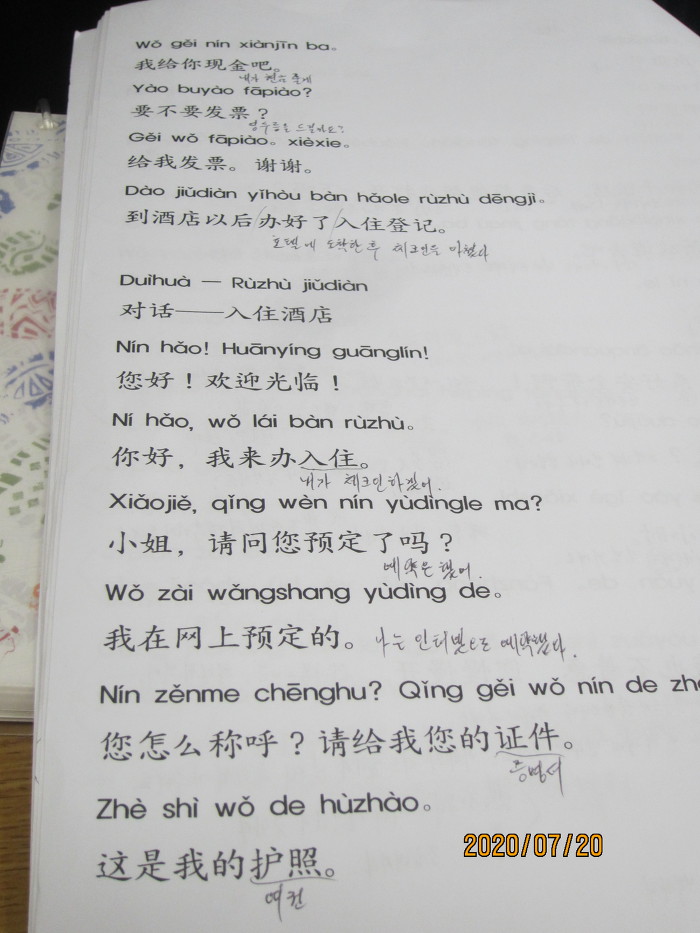 Wǒ gěi nín xiànjīn ba。
我给你现金吧。
내가 현금 줄게
Yào buyào fāpiào?
要不要发票？
영수증을 드릴까요?
Gěi wǒ fāpiào。xièxie。
给我发票。谢谢。
Dào jiǔdiàn yǐhòu bàn hǎole rùzhù dēngjì。
到酒店以后/办好了/入住登记。
호텔에 도착한 후 체크인을 마쳤다
Duìhuà — Rùzhù jiǔdiàn
对话——入住酒店
Nín hǎo! Huānyíng guānglín!
您好！欢迎光临！
Ní hǎo, wǒ lái bàn rùzhù。
你好，我来办入住。
내가 체크인하겠어.
Xiǎojiě, qǐng wèn nín yùdìngle ma?
小姐，请问您预定了吗？
예약은 했어.
Wǒ zài wǎngshang yùdìng de。
我在网上预定的。 나는 인터넷으로 예약했다.
Nín zěnme chēnghu? Qǐng gěi wǒ nín de zhe
您怎么称呼？请给我您的证件。
증명서
Zhè shì wǒ de hùzhào。
这是我的护照。
여권
2020/07/20